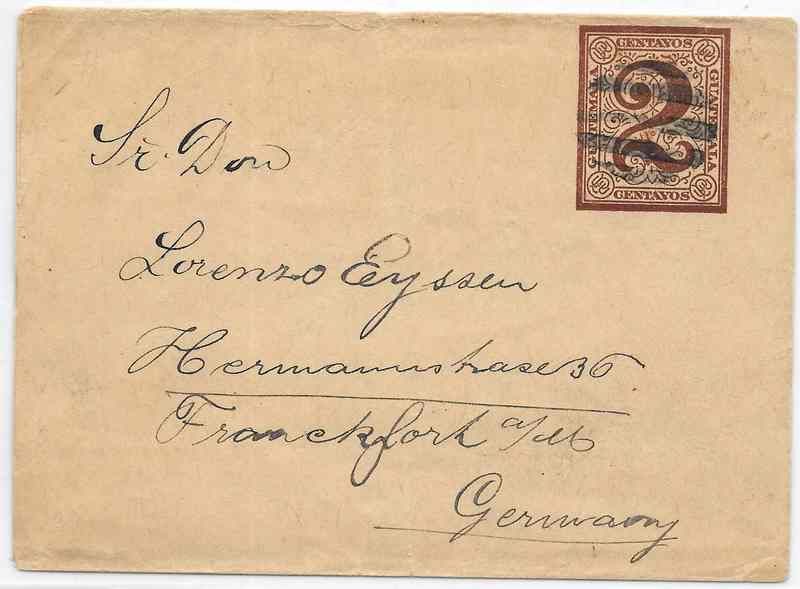 CENTAVOS
GUATEMALA
2
GUATEMALA
CENTAVOS
Sr. Don
Lorenzo Eyssen
Hermannstrase 36
Franckfort a/M
Germany